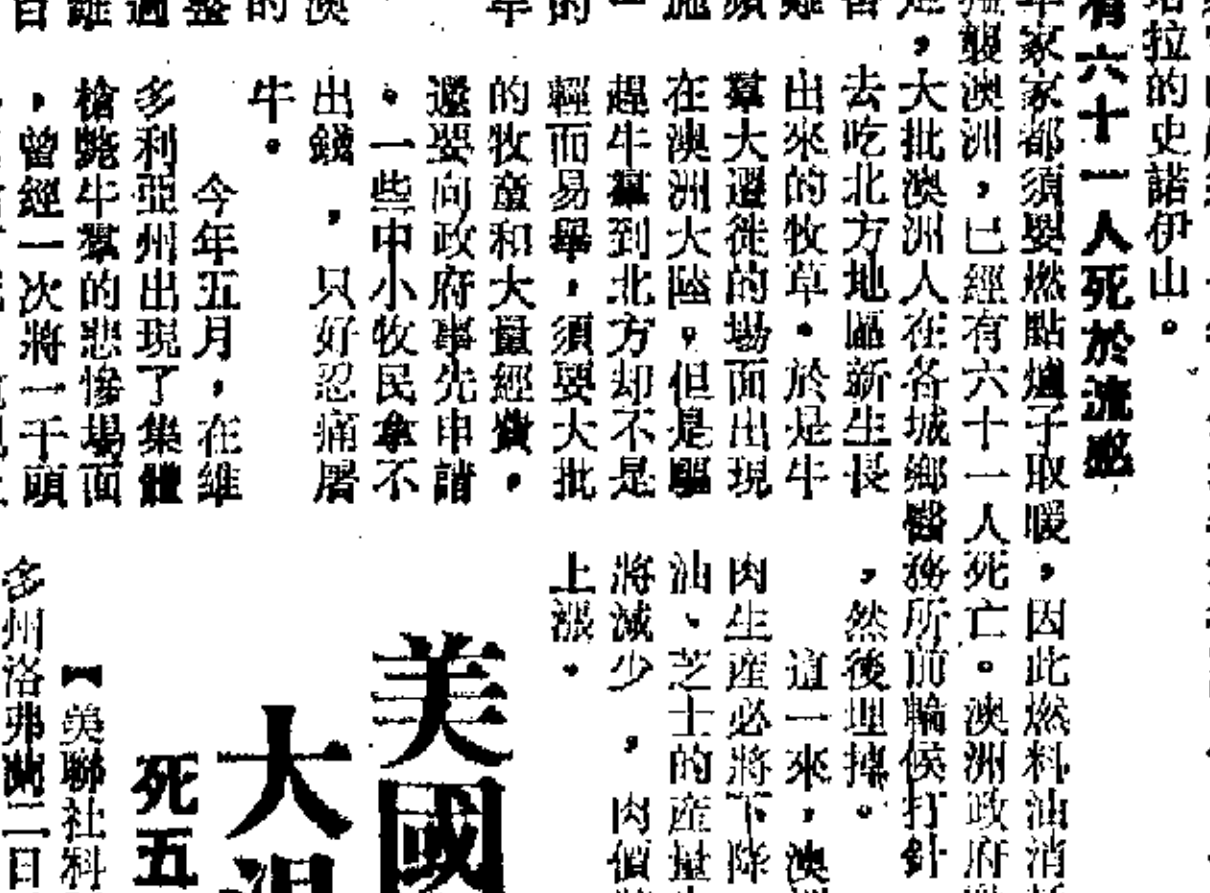 塔拉的史諾伊山。
有六十一人死於流感
年家家都須要燃點爐子取暖，因此燃料油消
襲澳洲，已經有六十一人死亡。澳洲政府
，大批澳洲人在各城鄉醫務所前輪候打針
去吃北方地區新生長
出來的牧草。於是牛
羣大遷徙的場面出現
在澳洲大陸，但是驅
趕牛羣到北方却不是
輕而易舉，須要大批
的牧童和大量經費，
還要向政府事先申請
。一些中小牧民拿不
出錢，只好忍痛屠
牛。
今年五月，在維
多利亞州出現了集體
槍斃牛羣的悲慘場面
，曾經一次將一千頭
，然後埋掉。
這一來，澳
肉生産必將下降
油、芝士的産量
將減少，肉價
上漲。
美國
大
死五
【美聯社科
多州洛弗蘭二日